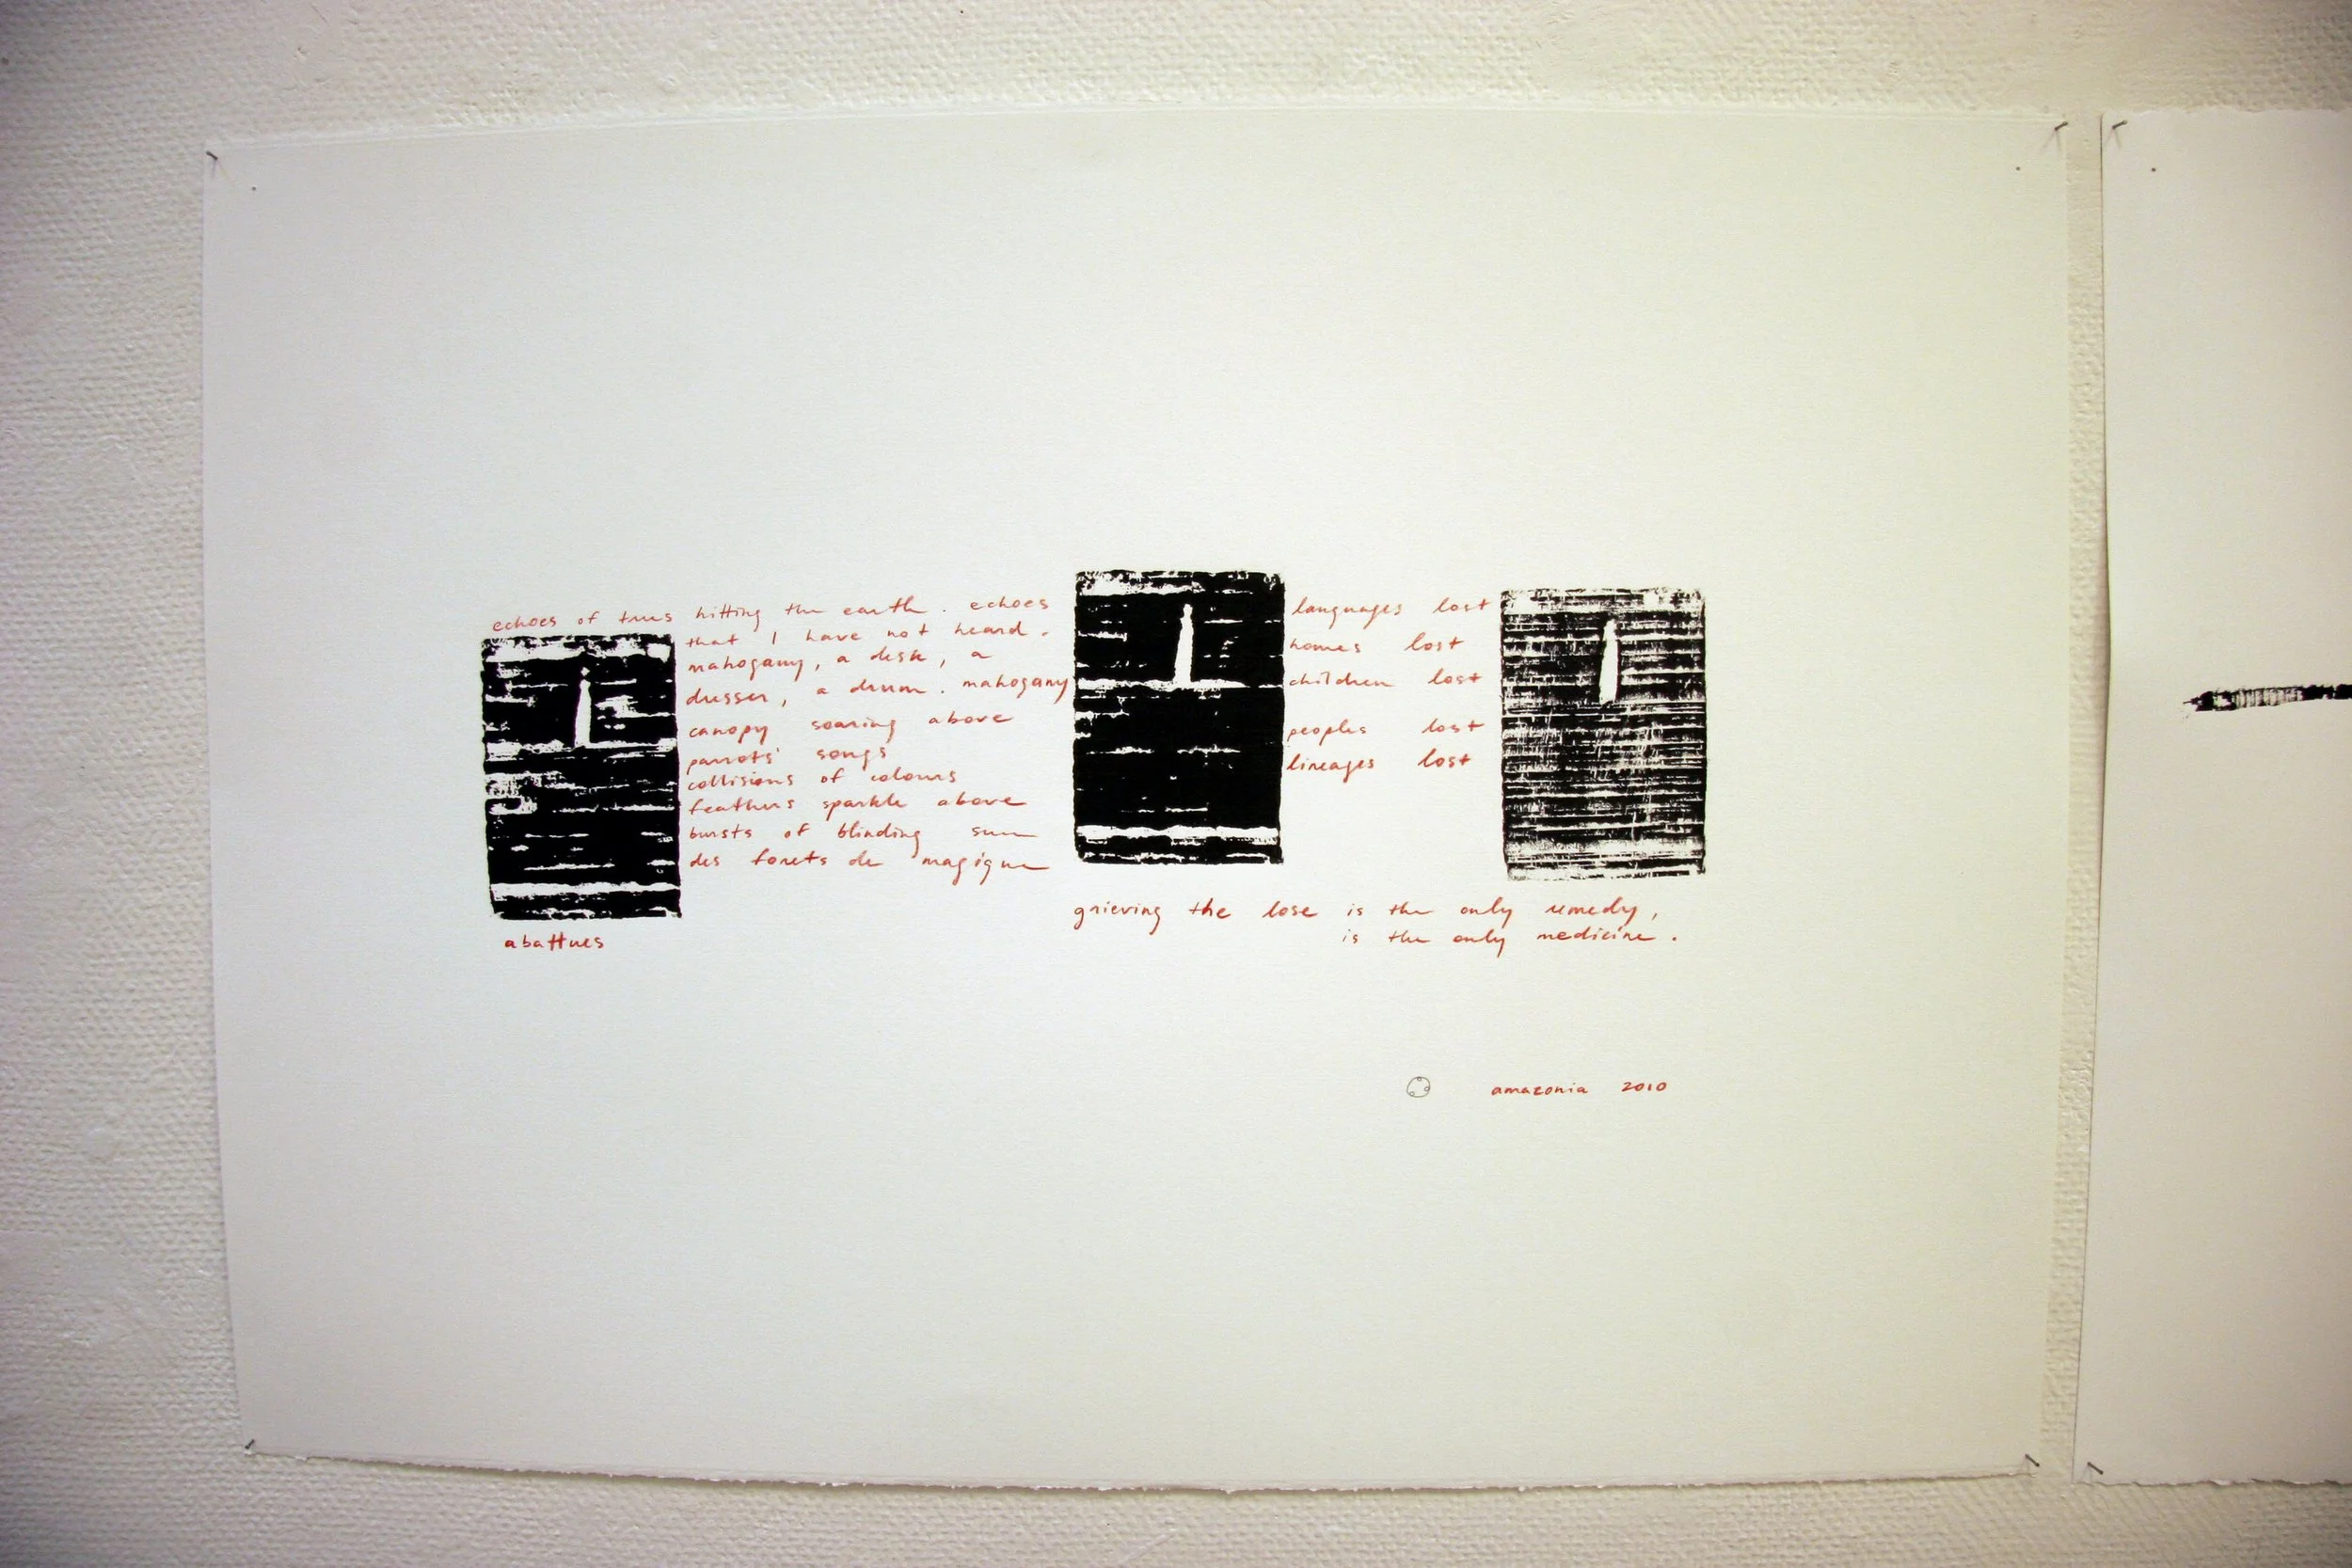 echoes of trees hitting the earth. echoes
that I have not heard.
mahogany, a desk, a
dresser, a drum. mahogany
canopy soaring above
parrots' songs
collisions of colours
feathers sparkle above
bursts of blinding sun
des forets de magique
abattues
languages lost
homes lost
children lost
peoples lost
lineages lost
grieving the lose is the only remedy,
is the only medicine.
amazonia 2010